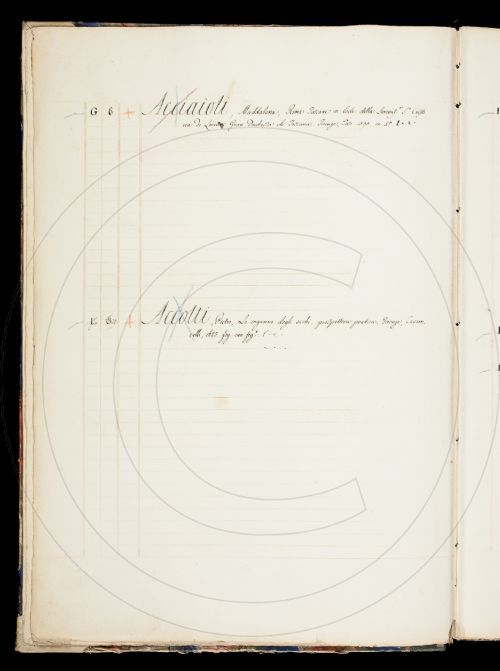 G 6 Acciaioli, Maddalena, Rime Toscane in lode della Seren.ª S.ª Cristi
na di Lorena Gran Duchessa di Toscana Firenze, 1590, in 4º
Accolti, Pietro, Lo inganno degli occhi, prospettiva pratica. Firenze, Cecon
celli, 1625. fog. con fig.ᵉ